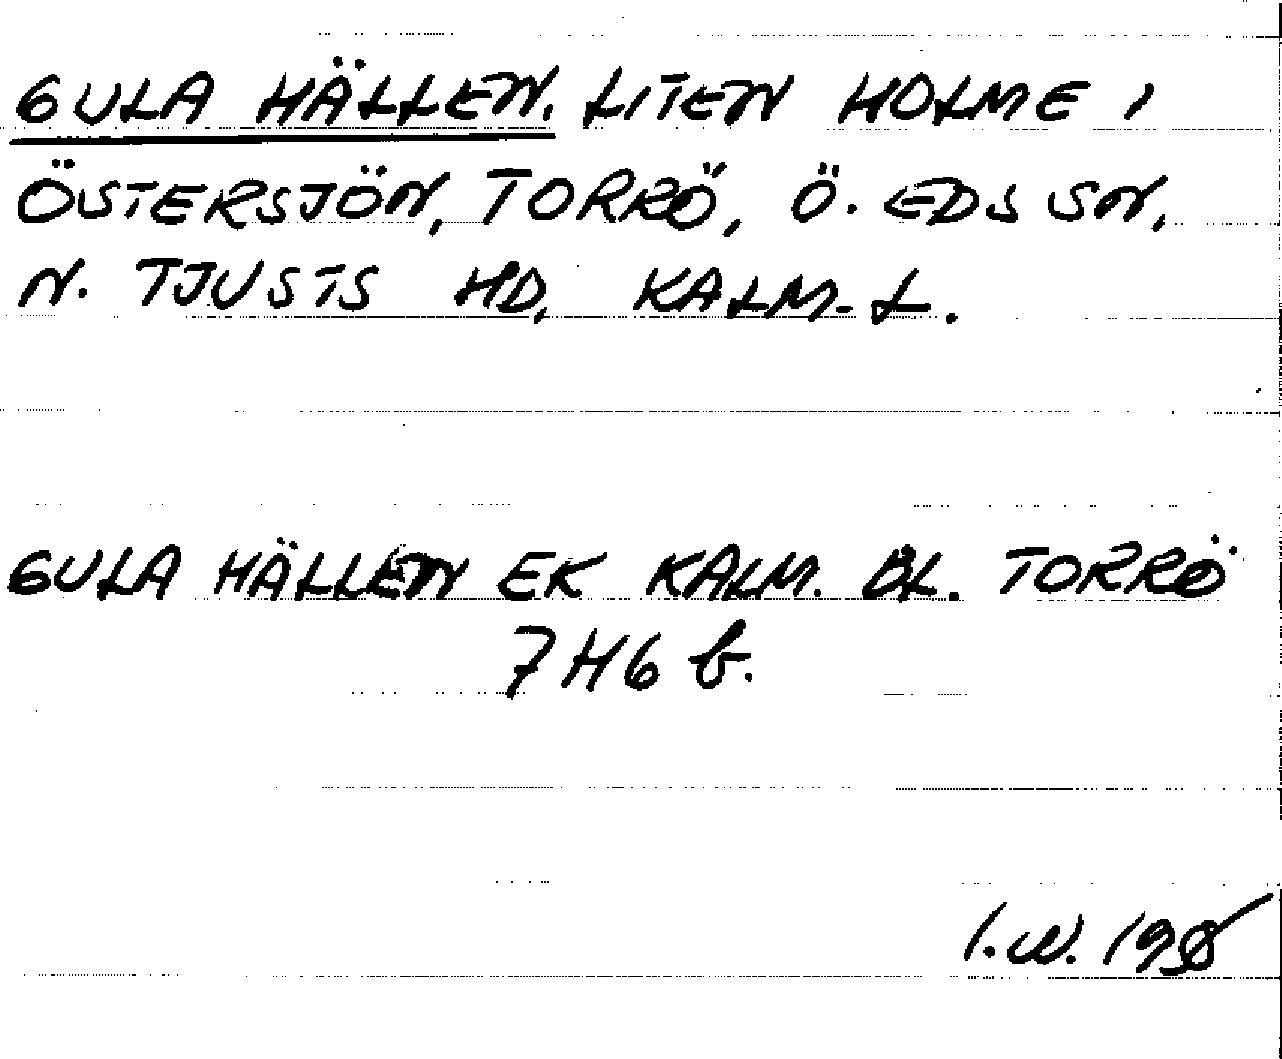 GULA HÄLLEN. LITEN HOLME I
ÖSTERSJÖN, TORRÖ, Ö. EDS SN,
N. TJUSTS HD, KALM. L.
GULA HÄLLEN EK KALM. BL. TORRÖ
7H6 b.
I.W.